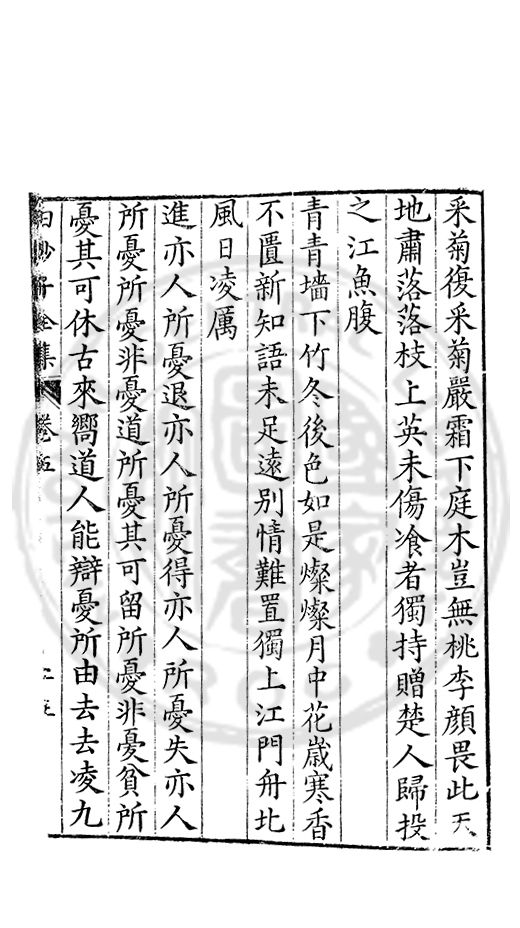 采菊復采菊嚴霜下庭木豈無桃李顔畏此天
地肅落落枝上英未傷飡者獨持贈楚人歸投
之江魚腹
青青墻下竹冬後色如是燦燦月中花歲寒香
不匱新知語未足遠别情難置獨上江門舟北
風日凌厲
進亦人所憂退亦人所憂得亦人所憂失亦人
所憂所憂非憂道所憂其可留所憂非憂貧所
憂其可休古來嚮道人能辯憂所由去去凌九
白沙子全集 卷五